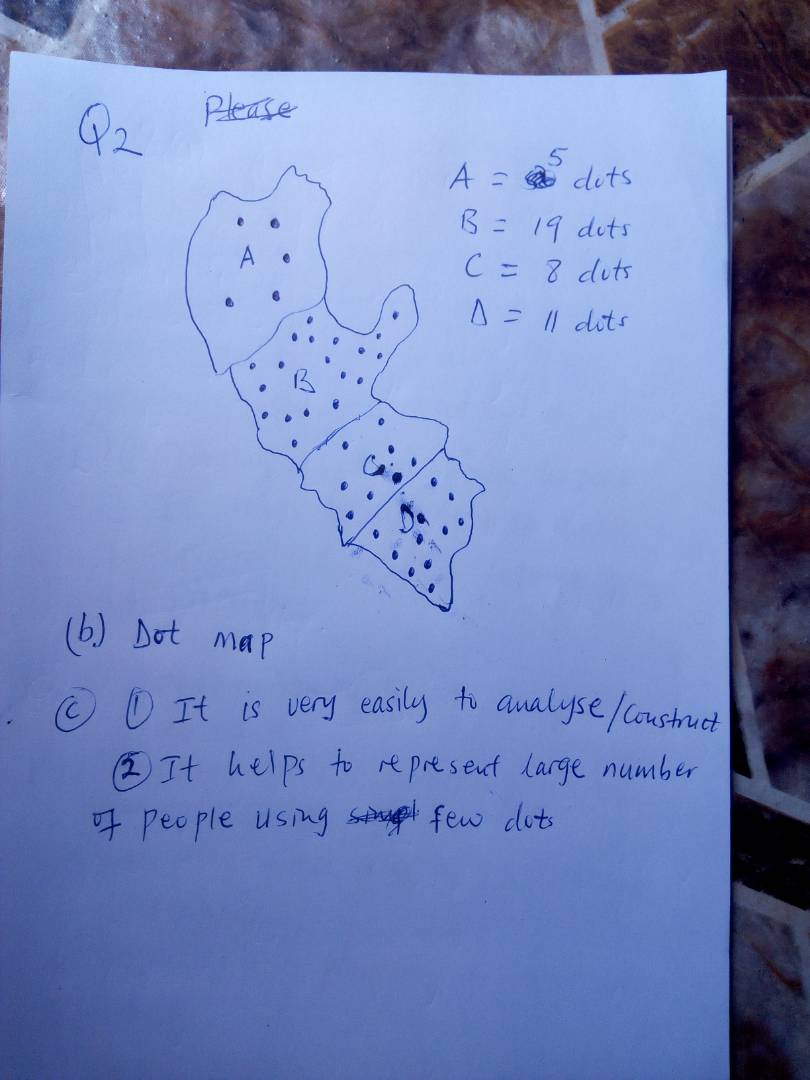 Q2 Please
A = 5 dots
B = 19 dots
C = 8 dots
D = 11 dots
A
B
C
D
(b) Dot map
(c) (1) It is very easily to analyse/construct
(2) It helps to represent large number
of people using few dots